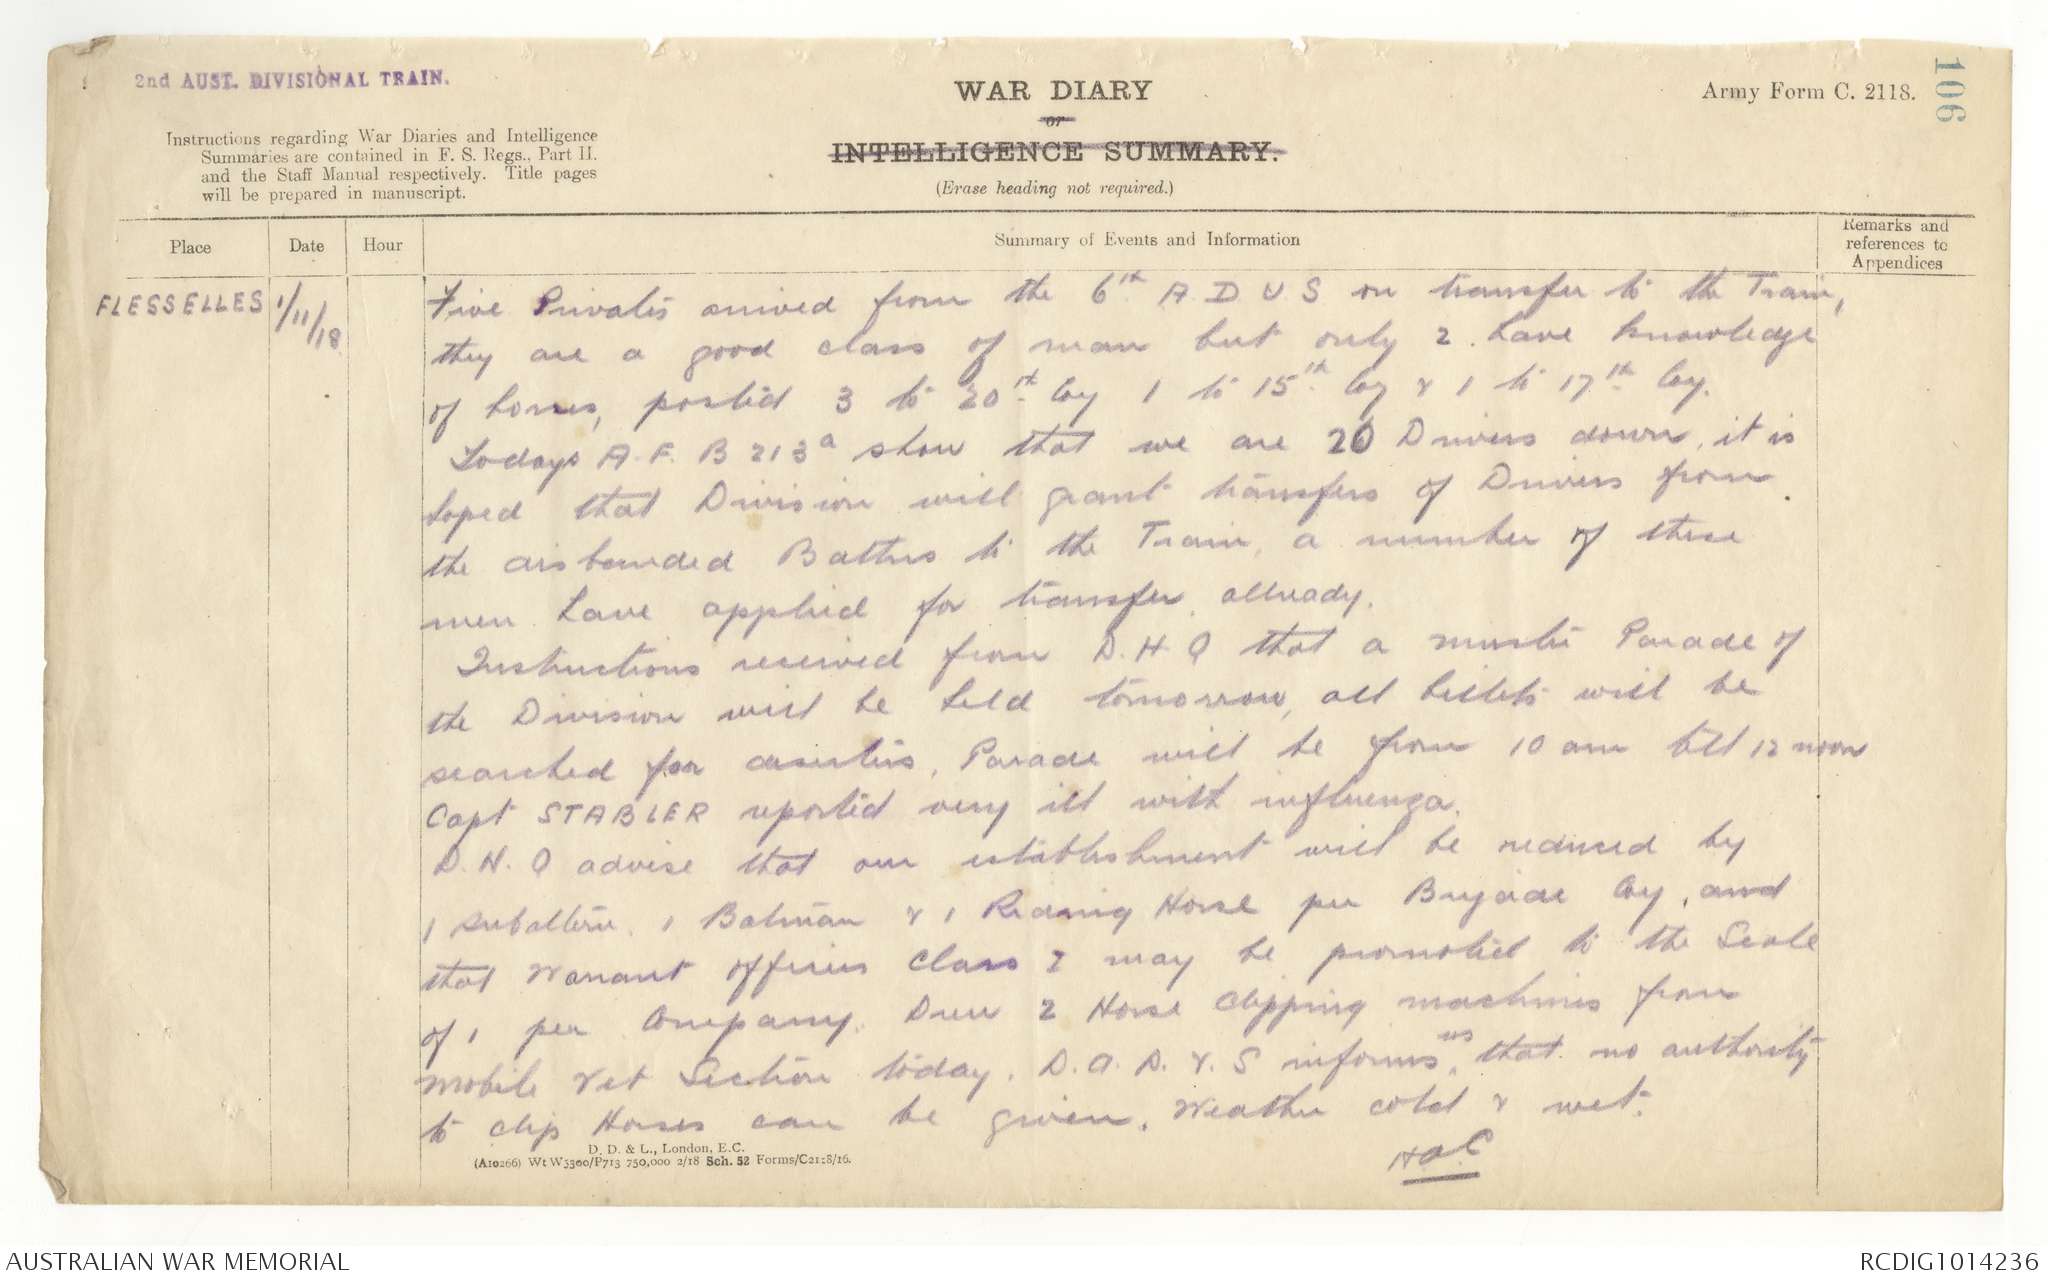 2nd AUST. DIVISIONAL TRAIN.
WAR DIARY
or
INTELLIGENCE SUMMARY.
(Erase heading not required.)
Army Form C. 2118.
106
Instructions regarding War Diaries and Intelligence
Summaries are contained in F. S. Regs., Part II.
and the Staff Manual respectively. Title pages
will be prepared in manuscript.
Place
Date
Hour
Summary of Events and Information
Remarks and
references to
Appendices
FLESSELLES
1/11/18
Five Privates arrived from the 6th A D U S on transfer to the Train,
they are a good class of man but only 2 have knowledge
of horses, posted 3 to 20th Coy 1 to 15th Coy & 1 to 17th Coy.
Todays A.F. B 213a show that we are 20 Drivers down, it is
hoped that Division will grant transfers of Drivers from
the disbanded Battns to the Train, a number of these
men have applied for transfer allready.
Instructions received from D.H.Q that a muster Parade of
the Division will be held tomorrow, all billets will be
searched for deserters, Parade will be from 10 am till 12 noon
Capt STABLER reported very ill with influenza.
D.H.Q advise that our establishment will be reduced by
1 subaltern, 1 Batman & 1 Riding Horse per Brigade Coy, and
that Warrant officers Class I may be promoted to the Scale
of 1 per Company. Drew 2 Horse Clipping machines from
Mobile Vet Section today. D.A.D.V.S informs us that no authority
to clip Horses can be given. Weather cold & wet.
HOC
D. D. & L., London, E.C.
(A10266) Wt W5300/P713 750,000 2/18 Sch. 52 Forms/C2118/16.
AUSTRALIAN WAR MEMORIAL
RCDIG1014236